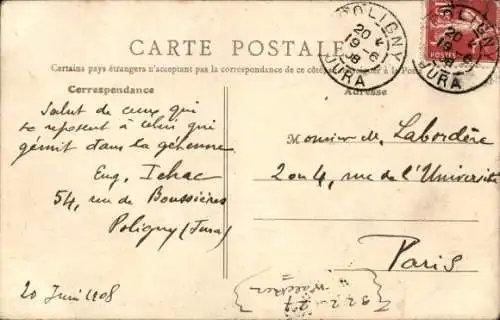 CARTE POSTALE
Certains pays étrangers n'acceptant pas la correspondance de ce côté, à la Poste
Correspondance
Adresse
POLIGNY
20
19 6
08
JURA
POLIGNY
20
19 6
08
JURA
Salut de ceux qui
se reposent à celui qui
gémit dans la géhenne.
Eug. Ichac
54, rue de Boussières
Poligny (Jura)
20 Juin 1908
Monsieur M. Labordère
2 ou 4, rue de l'Université
Paris